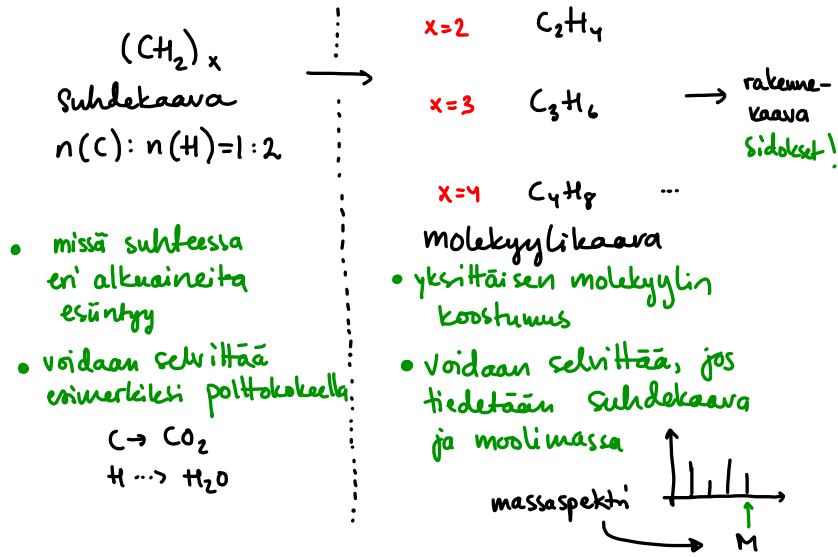 (CH₂)ₓ
Suhdekaava
n(C): n(H)=1:2
• missä suhteessa
eri alkuaineita
esiintyy
• voidaan selvittää
esimerkiksi polttokokeella
C → CO₂
H ⋯> H₂O
x=2 C₂H₄
x=3 C₃H₆
x=4 C₄H₈ ...
molekyylikaava
• yksittäisen molekyylin
koostumus
• voidaan selvittää, jos
tiedetään suhdekaava
ja moolimassa
massaspektri
M
→ rakenne-
kaava
Sidokset!